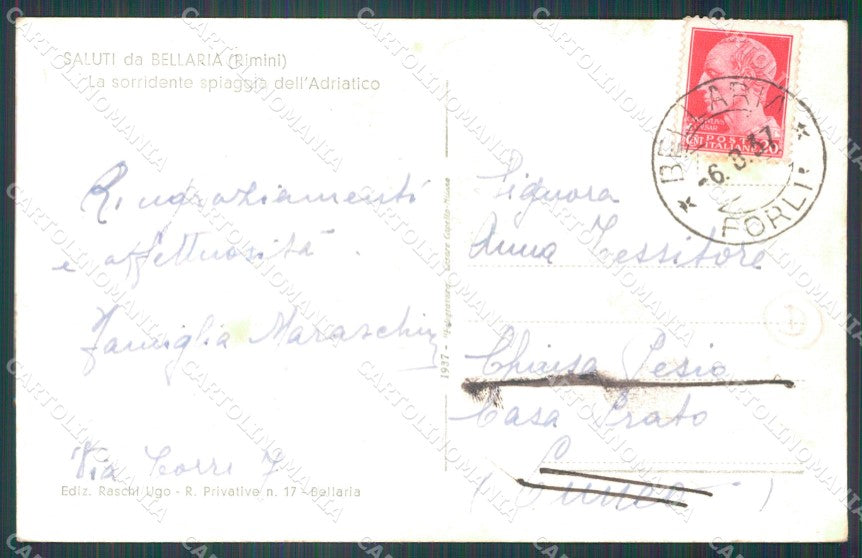 SALUTI da BELLARIA (Rimini)
La sorridente spiaggia dell'Adriatico
Ringraziamenti
e affettuosità
Famiglia Maraschin
Via Torre 7
Ediz. Raschi Ugo - R. Privative n. 17 - Bellaria
1937 -
Signora
Anna Tessitore
Chiusa Pesio
Casa Prato
(Cuneo)
POSTE
ITALIANE
CENT 20
BELLARIA
-6.8.37
FORLI'
CARTOLINOMANIA